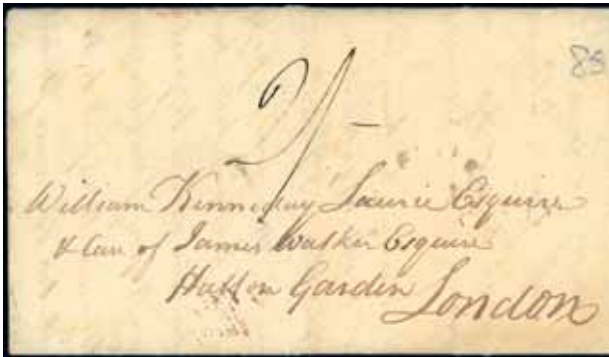 85
2/-
William Kennedy Laurie Esquire
Care of James Walker Esquire
Hatton Garden London